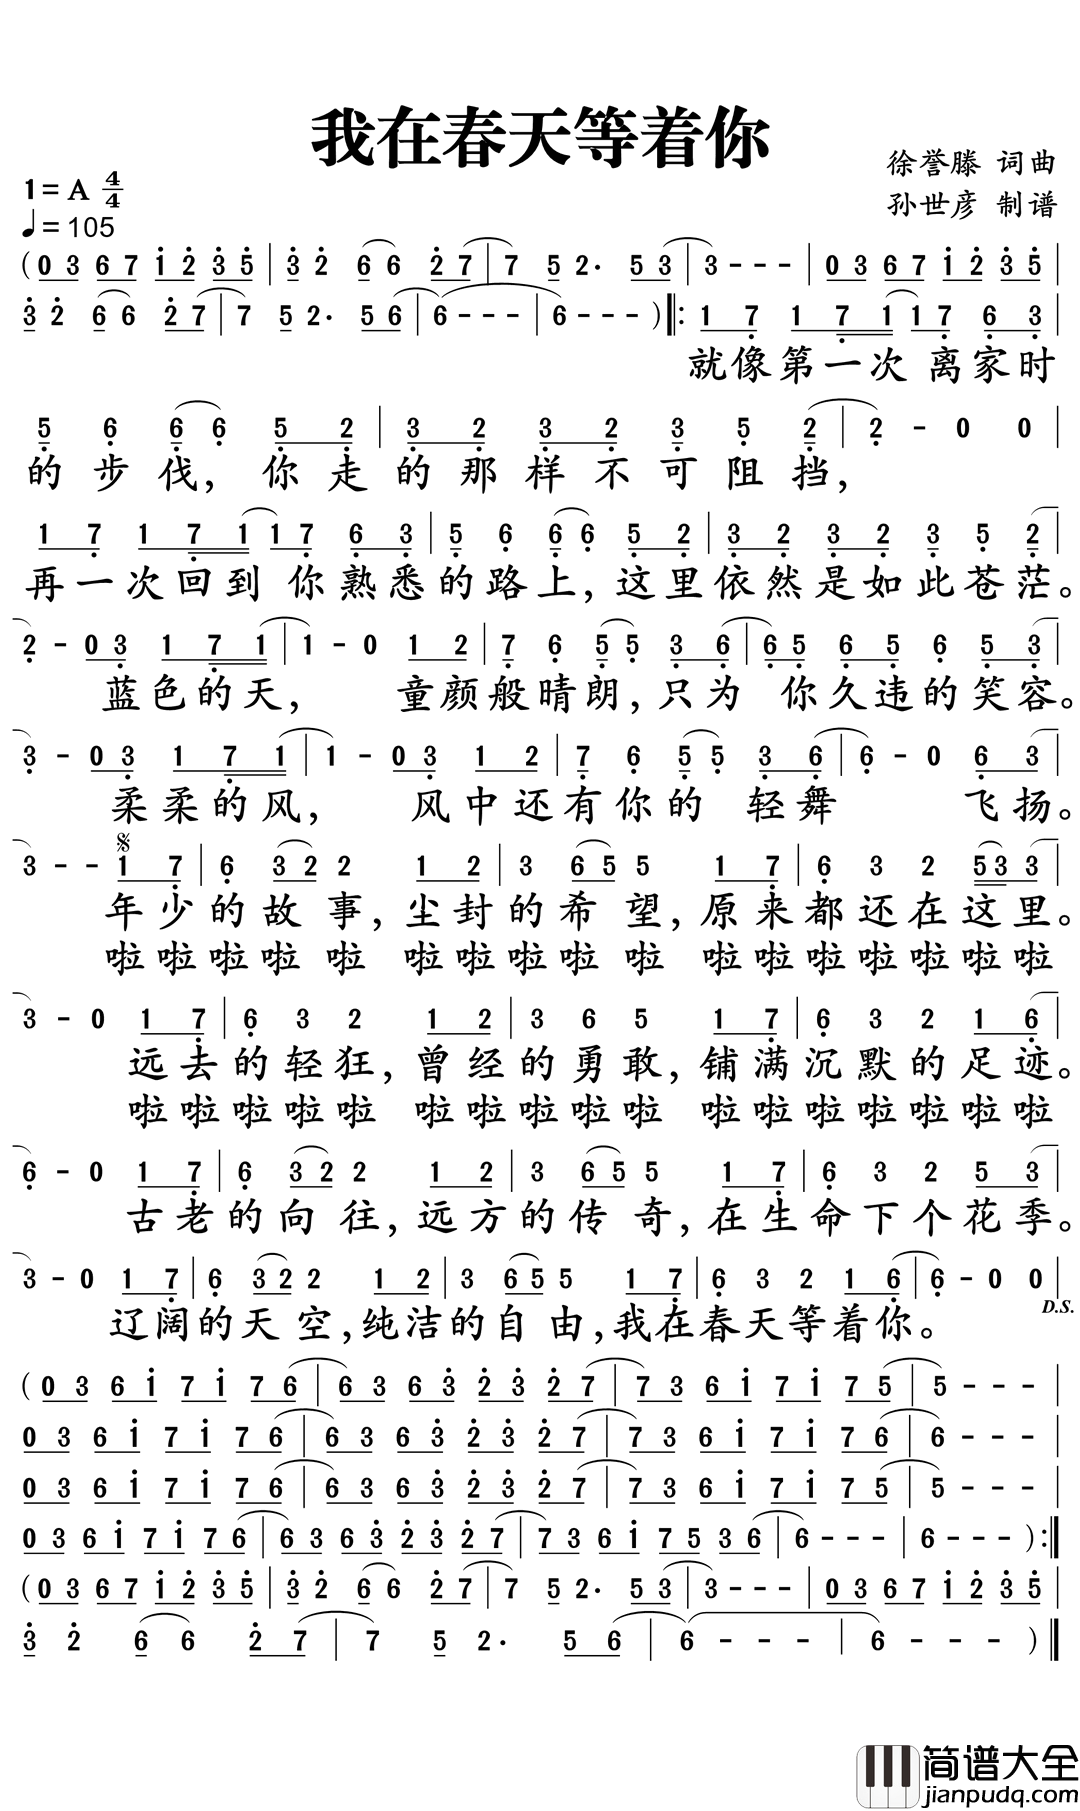 我在春天等着你
徐誉滕 词曲
孙世彦 制谱
1=A 4/4
♩=105
(0 3 6 7 1̇ 2̇ 3̇ 5̇ | 3̇ 2̇ 6 6 2̇ 7 | 7 5 2· 5 3 | 3 - - - | 0 3 6 7 1̇ 2̇ 3̇ 5̇ |
3̇ 2̇ 6 6 2̇ 7 | 7 5 2· 5 6 | 6 - - - | 6 - - - ) ‖: 1 7̣ 1 7̣ 1 1 7̣ 6̣ 3̣ |
就像第一次 离家时
5̣ 6̣ 6̣ 6̣ 5̣ 2̣ | 3̣ 2̣ 3̣ 2̣ 3̣ 5̣ 2̣ | 2̣ - 0 0 |
的步伐，你走的那样不可阻挡，
1 7̣ 1 7̣ 1 1 7̣ 6̣ 3̣ | 5̣ 6̣ 6̣ 6̣ 5̣ 2̣ | 3̣ 2̣ 3̣ 2̣ 3̣ 5̣ 2̣ |
再一次回到 你熟悉的路上，这里依然是如此苍茫。
2̣ - 0 3̣ 1 7̣ 1 | 1 - 0 1 2 | 7̣ 6̣ 5̣ 5̣ 3̣ 6̣ | 6̣ 5̣ 6̣ 5̣ 6̣ 5̣ 3̣ |
蓝色的天， 童颜般晴朗，只为 你久违的笑容。
3̣ - 0 3̣ 1 7̣ 1 | 1 - 0 3̣ 1 2 | 7̣ 6̣ 5̣ 5̣ 3̣ 6̣ | 6̣ - 0 6̣ 3 |
柔柔的风， 风中还有你的 轻舞 飞扬。
3 - - 𝄋 1 7̣ | 6̣ 3 2 2 1 2 | 3 6 5 5 1 7̣ | 6̣ 3 2 5 3 3 |
年少的故 事，尘封的希 望，原来都还在这里。
啦啦啦啦 啦 啦啦啦啦 啦 啦啦啦啦啦啦啦
3 - 0 1 7̣ | 6̣ 3 2 1 2 | 3 6 5 1 7̣ | 6̣ 3 2 1 6̣ |
远去的轻狂，曾经的勇敢，铺满沉默的足迹。
啦啦啦啦啦 啦啦啦啦啦 啦啦啦啦啦啦啦
6̣ - 0 1 7̣ | 6̣ 3 2 2 1 2 | 3 6 5 5 1 7̣ | 6̣ 3 2 5 3 |
古老的向 往，远方的传 奇，在生命下个花季。
3 - 0 1 7̣ | 6̣ 3 2 2 1 2 | 3 6 5 5 1 7̣ | 6̣ 3 2 1 6̣ | 6̣ - 0 0 |
D.S.
辽阔的天 空，纯洁的自 由，我在春天等着你。
(0 3 6 1̇ 7 1̇ 7 6 | 6 3 6 3̇ 2̇ 3̇ 2̇ 7 | 7 3 6 1̇ 7 1̇ 7 5 | 5 - - - |
0 3 6 1̇ 7 1̇ 7 6 | 6 3 6 3̇ 2̇ 3̇ 2̇ 7 | 7 3 6 1̇ 7 1̇ 7 6 | 6 - - - |
0 3 6 1̇ 7 1̇ 7 6 | 6 3 6 3̇ 2̇ 3̇ 2̇ 7 | 7 3 6 1̇ 7 1̇ 7 5 | 5 - - - |
0 3 6 1̇ 7 1̇ 7 6 | 6 3 6 3̇ 2̇ 3̇ 2̇ 7 | 7 3 6 1̇ 7 5 3 6 | 6 - - - | 6 - - - ) :‖
(0 3 6 7 1̇ 2̇ 3̇ 5̇ | 3̇ 2̇ 6 6 2̇ 7 | 7 5 2· 5 3 | 3 - - - | 0 3 6 7 1̇ 2̇ 3̇ 5̇ |
3̇ 2̇ 6 6 2̇ 7 | 7 5 2· 5 6 | 6 - - - | 6 - - - ) ‖
简谱大全
jianpudq.com